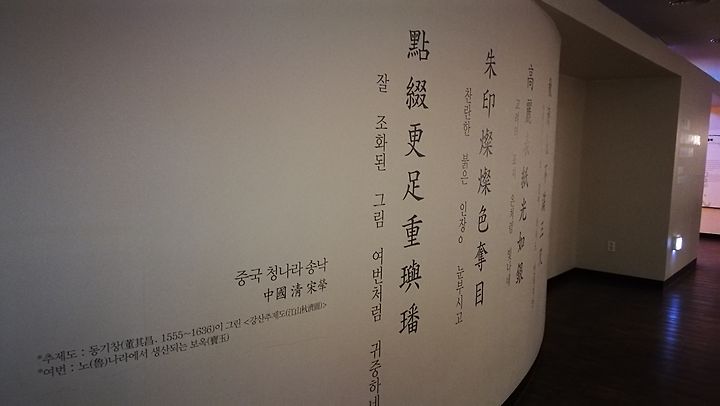 高麗表紙光如銀
고려의 표지 은처럼 빛나네
朱印燦燦色奪目
찬란한 붉은 인장이 눈부시고
點綴更足重璵璠
잘 조화된 그림 여번처럼 귀중하네
중국 청나라 송낙
中國 清 宋犖
*추제도 : 동기창(董其昌. 1555~1636)이 그린 <강산추제도(江山秋濟圖)>
*여번 : 노(魯)나라에서 생산되는 보옥(寶玉)